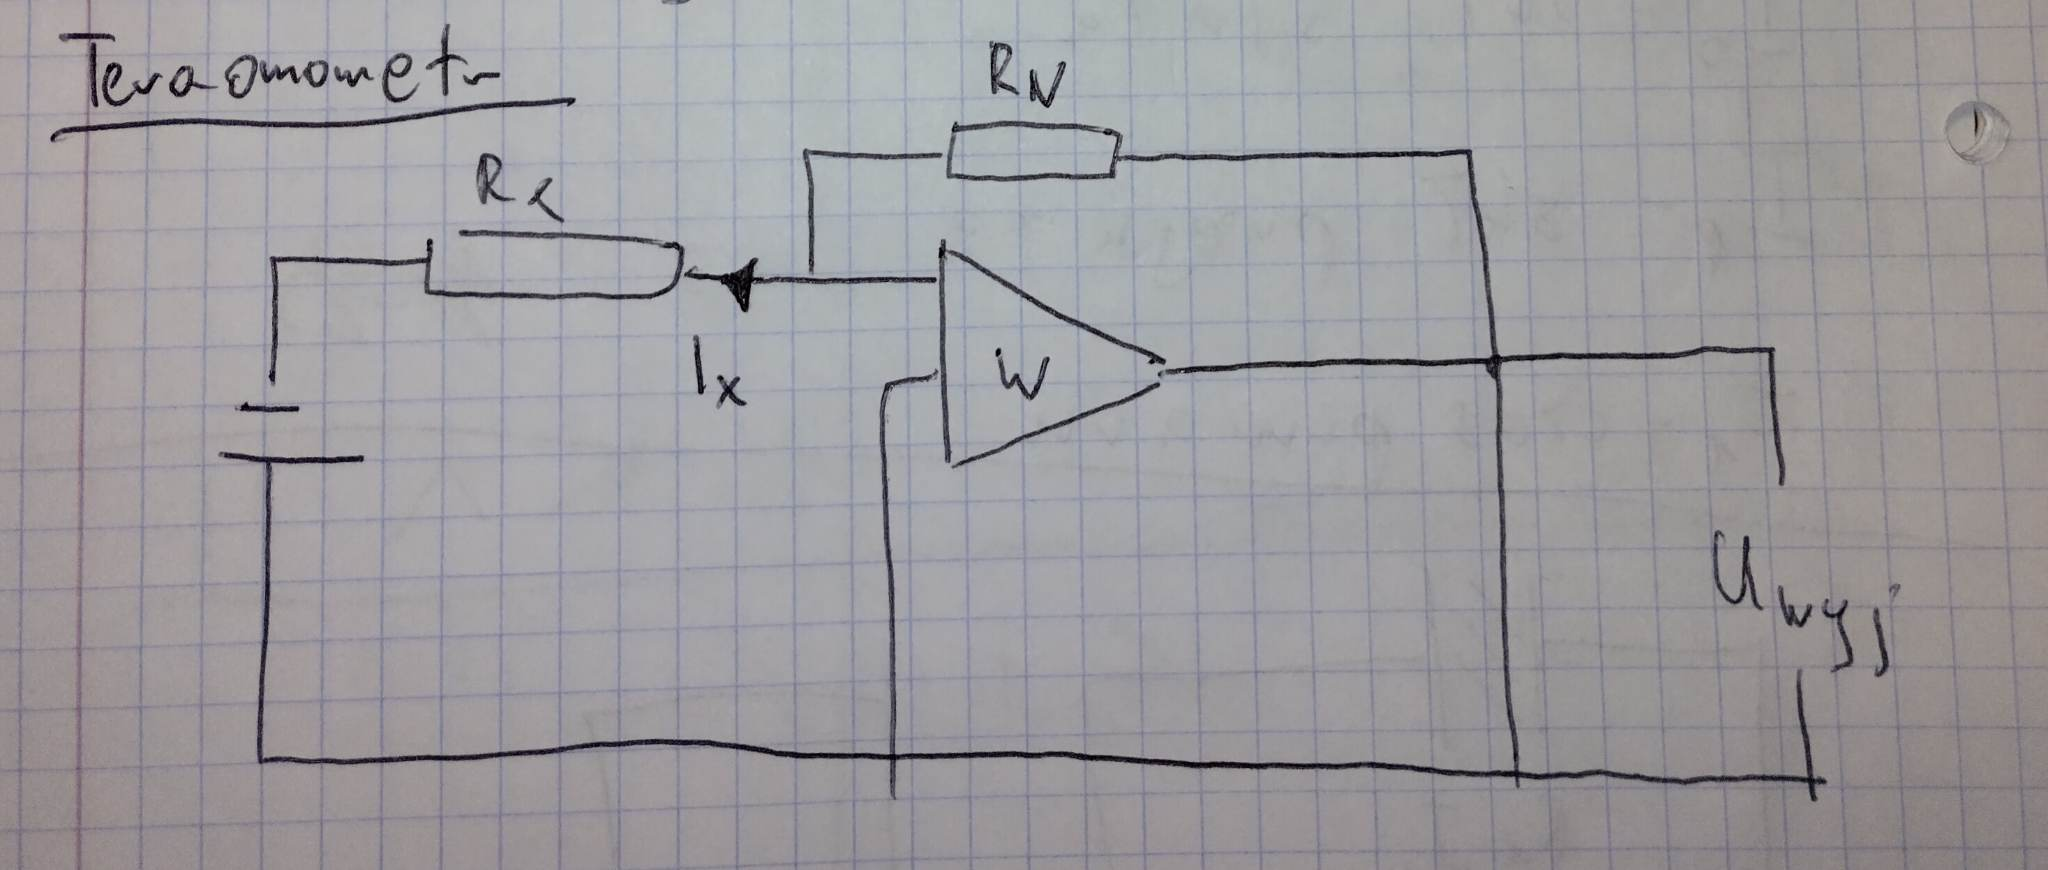 Teraomometr
RN
Rx
Ix
W
Uwyj